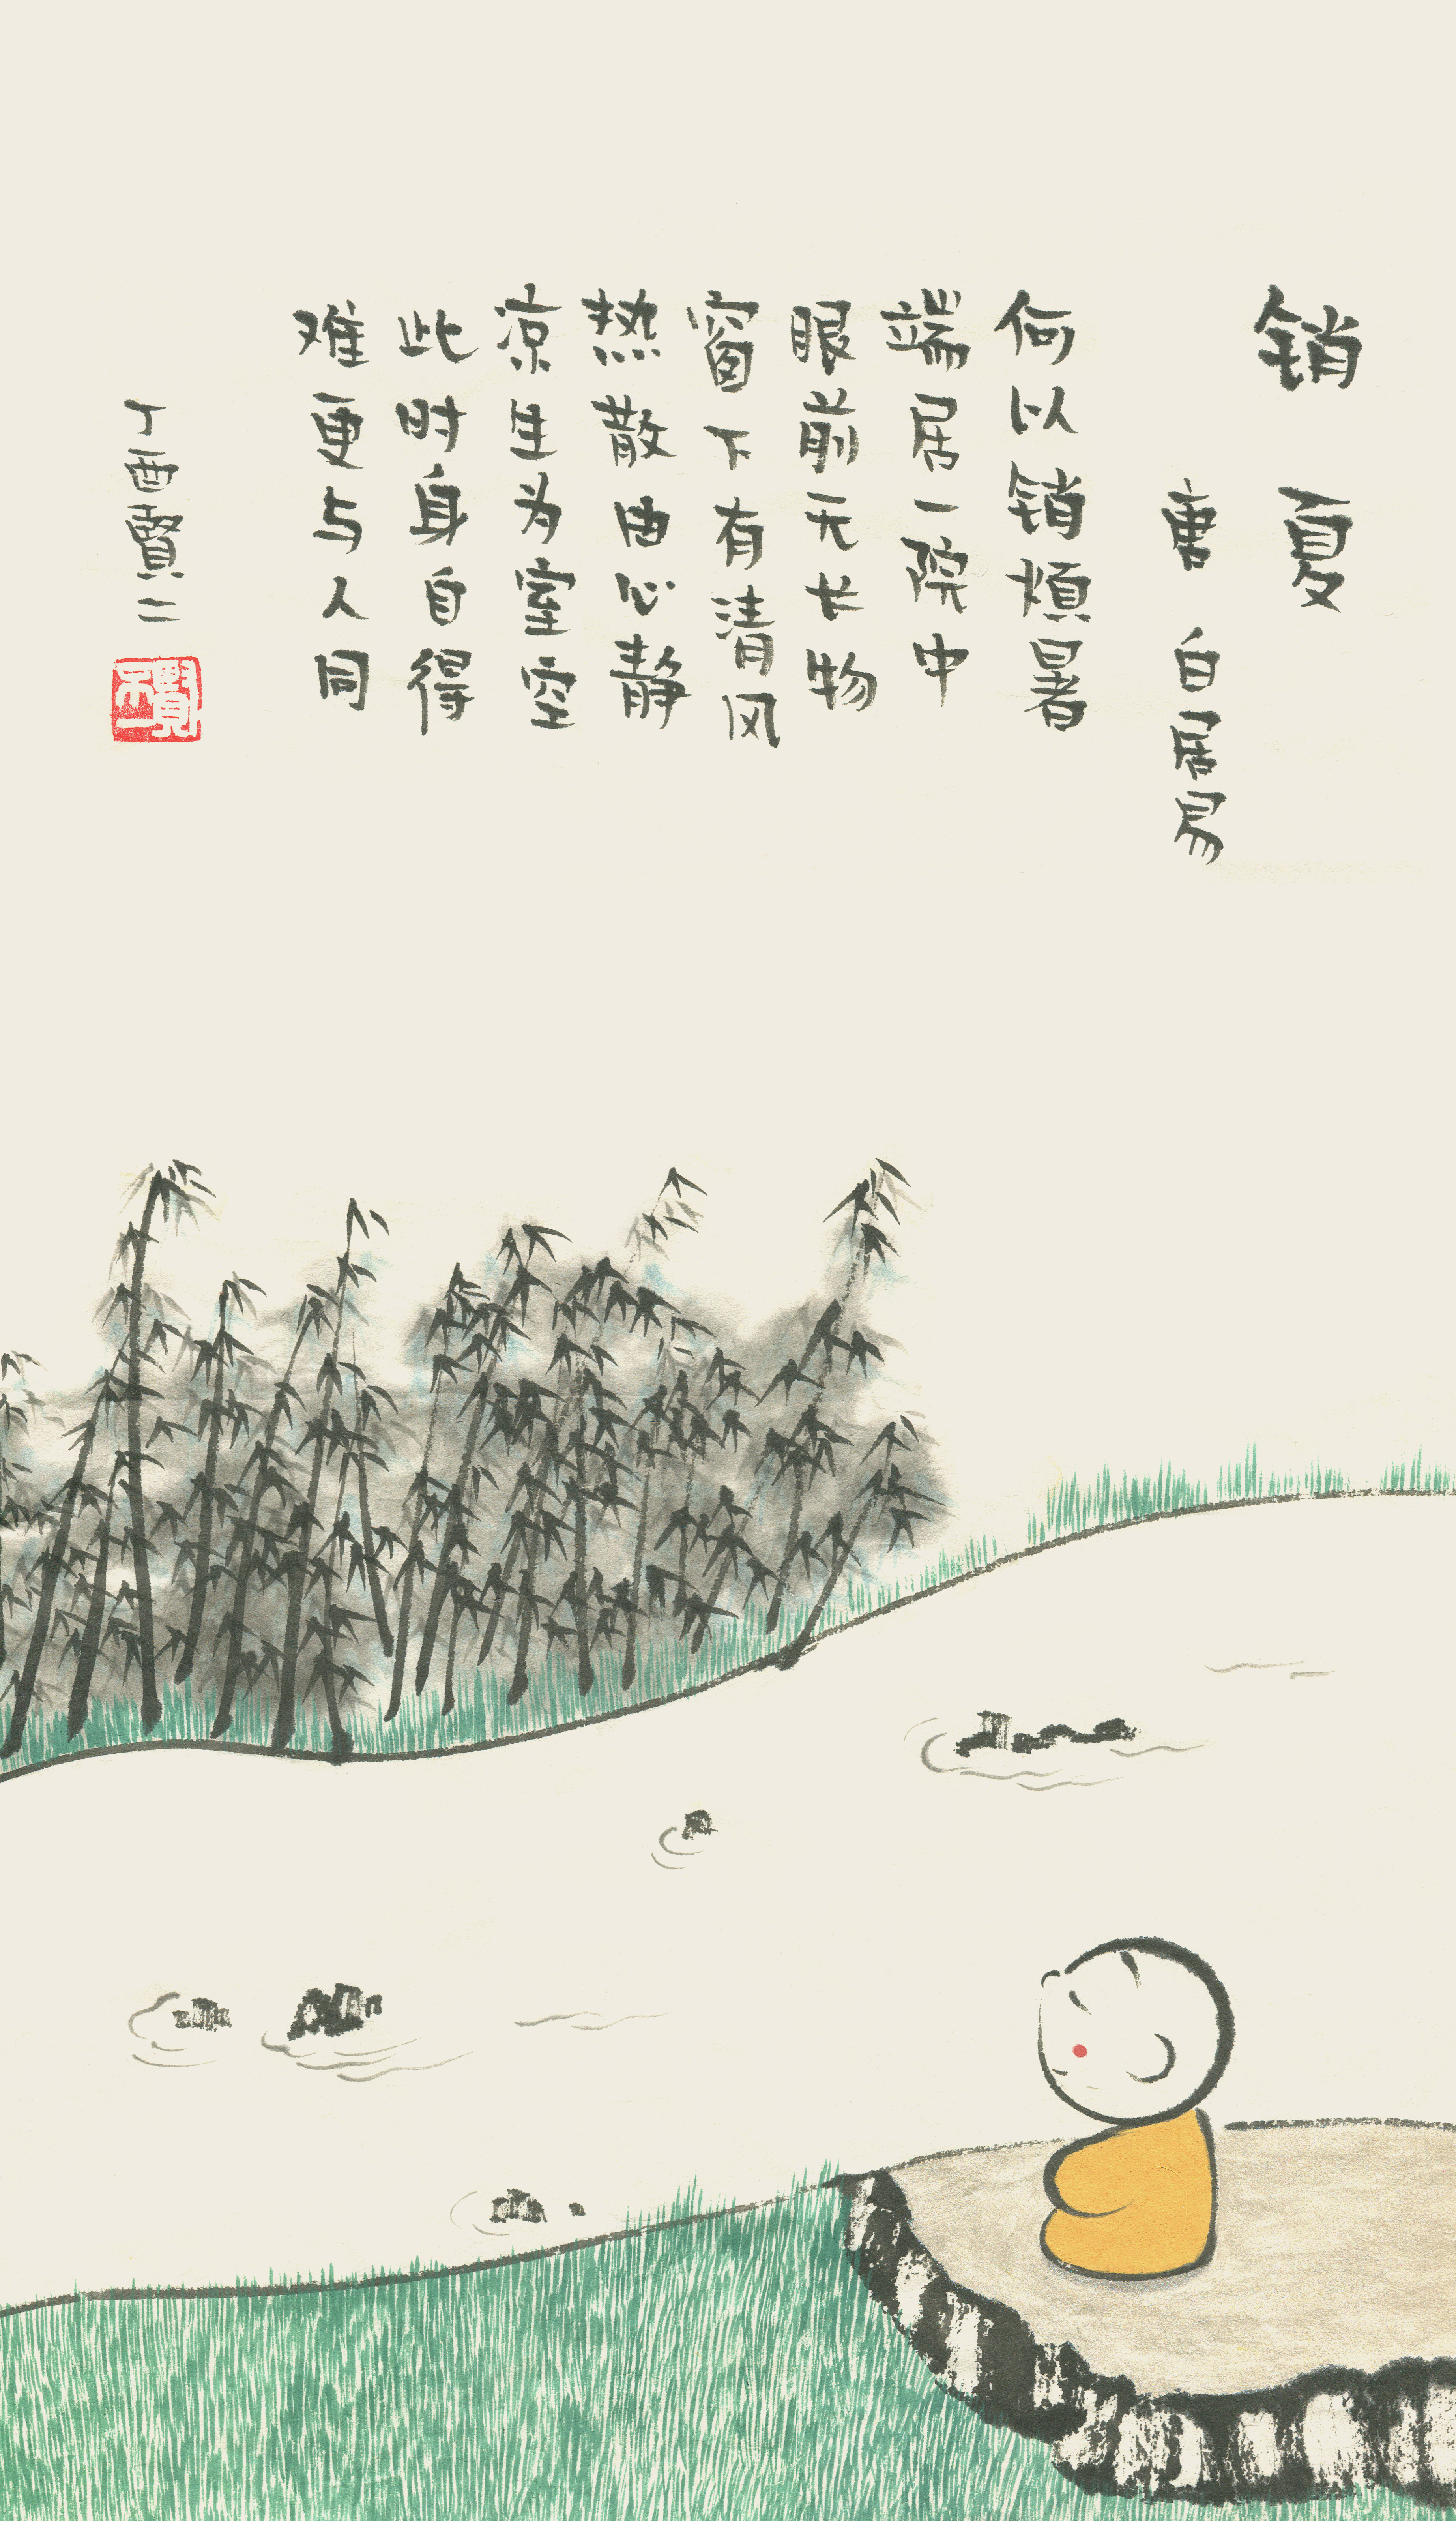 销夏
唐 白居易
何以销烦暑
端居一院中
眼前无长物
窗下有清风
热散由心静
凉生为室空
此时身自得
难更与人同
丁酉賢二